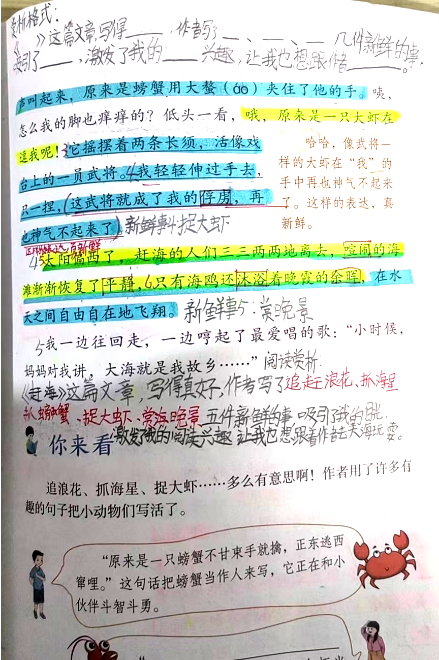 赏析格式:
《 》这篇文章,写得____,作者写了__、__、__几件新鲜的事,
吸引了____,激发了我的____兴趣,让我也想跟作者____。
声叫起来,原来是螃蟹用大螯(áo)夹住了他的手。咦,
怎么我的脚也痒痒的?低头一看,哦,原来是一只大虾在
逗我呢!它摇摆着两条长须,活像戏
台上的一员武将。我轻轻伸过手去,
只一捏,(这武将就成了我的俘虏,再
也神气不起来了。)新鲜事4:捉大虾
哈哈,像武将一
样的大虾在“我”的
手中再也神气不起来
了。这样的表达,真
新鲜。
太阳偏西了,赶海的人们三三两两地离去,喧闹的海
滩渐渐恢复了平静,只有海鸥还沐浴着晚霞的余晖,在水
天之间自由自在地飞翔。新鲜事5:赏晚景
5我一边往回走,一边哼起了最爱唱的歌:“小时候,
妈妈对我讲,大海就是我故乡……”阅读赏析:
《赶海》这篇文章,写得真好,作者写了追赶浪花、抓海星
趴螃蟹、捉大虾、赏海晚景五件新鲜的事,吸引了我的眼
激发了我的阅读兴趣,让我也想跟着作者去大海玩耍。
你来看
追浪花、抓海星、捉大虾……多么有意思啊!作者用了许多有
趣的句子把小动物们写活了。
“原来是一只螃蟹不甘束手就擒,正东逃西
窜哩。”这句话把螃蟹当作人来写,它正在和小
伙伴斗智斗勇。